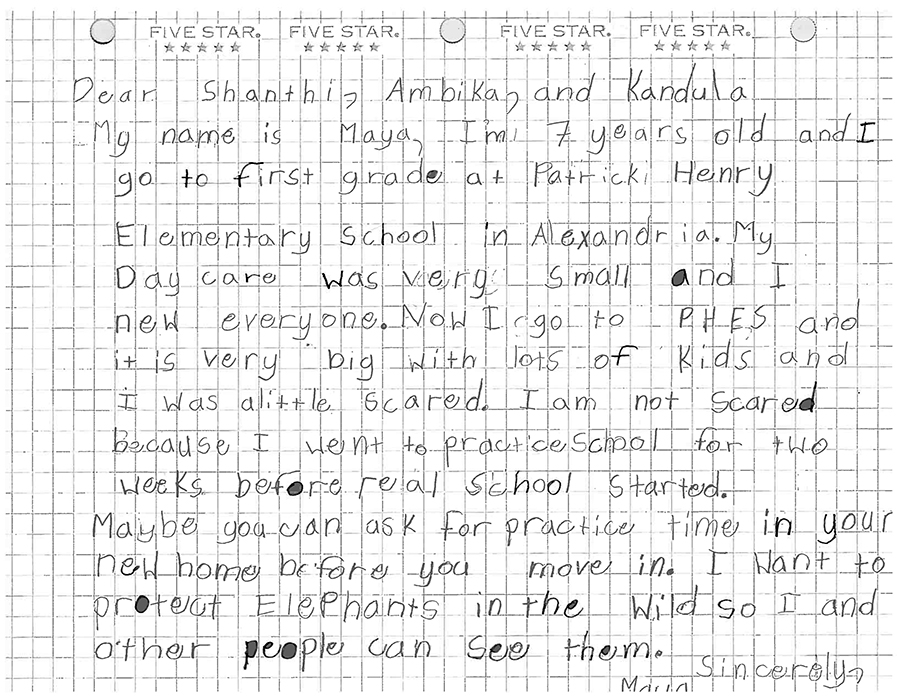 FIVE STAR. FIVE STAR. FIVE STAR. FIVE STAR.
Dear Shanthi, Ambika, and Kandula
My name is Maya, I'm 7 years old and I
go to first grade at Patrick Henry
Elementary School in Alexandria. My
Day care was very small and I
new everyone. Now I go to PHES and
it is very big with lots of kids and
i was alittle scared. I am not scared
because I went to practice School for two
weeks before real School started.
Maybe you can ask for practice time in your
new home before you move in. I want to
protect Elephants in the wild so I and
other people can see them.
Sincerely,
Maya